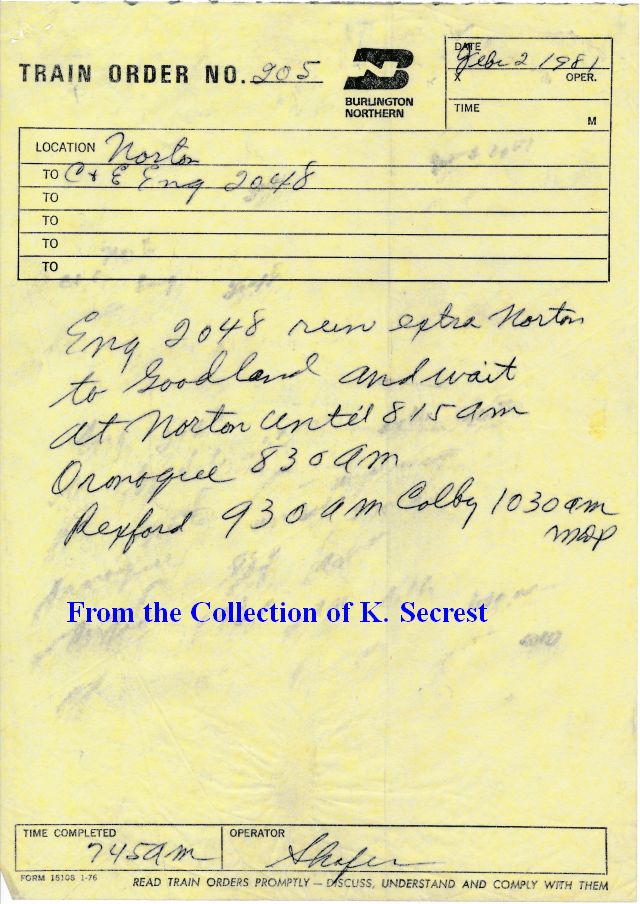 TRAIN ORDER NO. 205
BURLINGTON
NORTHERN
DATE Feb 2 1981
X OPER.
TIME
M
LOCATION Norton
TO C + E Eng 2048
TO
TO
TO
TO
Eng 2048 run extra Norton
to Goodland and wait
at Norton until 815 am
Oronoque 830 am
Rexford 930 am Colby 1030 am
From the Collection of K. Secrest
TIME COMPLETED
745 am
OPERATOR
Shafer
FORM 15108 1-76
READ TRAIN ORDERS PROMPTLY — DISCUSS, UNDERSTAND AND COMPLY WITH THEM